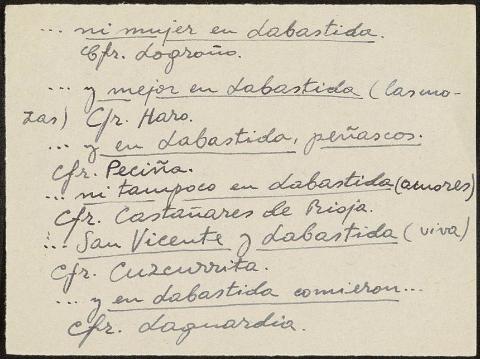 ... ni mujer en Labastida.
Cfr. Logroño.
... y mejor en Labastida (las mo-
zas) Cfr. Haro.
... y en Labastida, peñascos.
Cfr. Peciña.
... ni tampoco en Labastida (amores)
Cfr. Castañares de Rioja.
... San Vicente y Labastida (viva)
Cfr. Cuzcurrita.
... y en Labastida comieron...
Cfr. Laguardia.